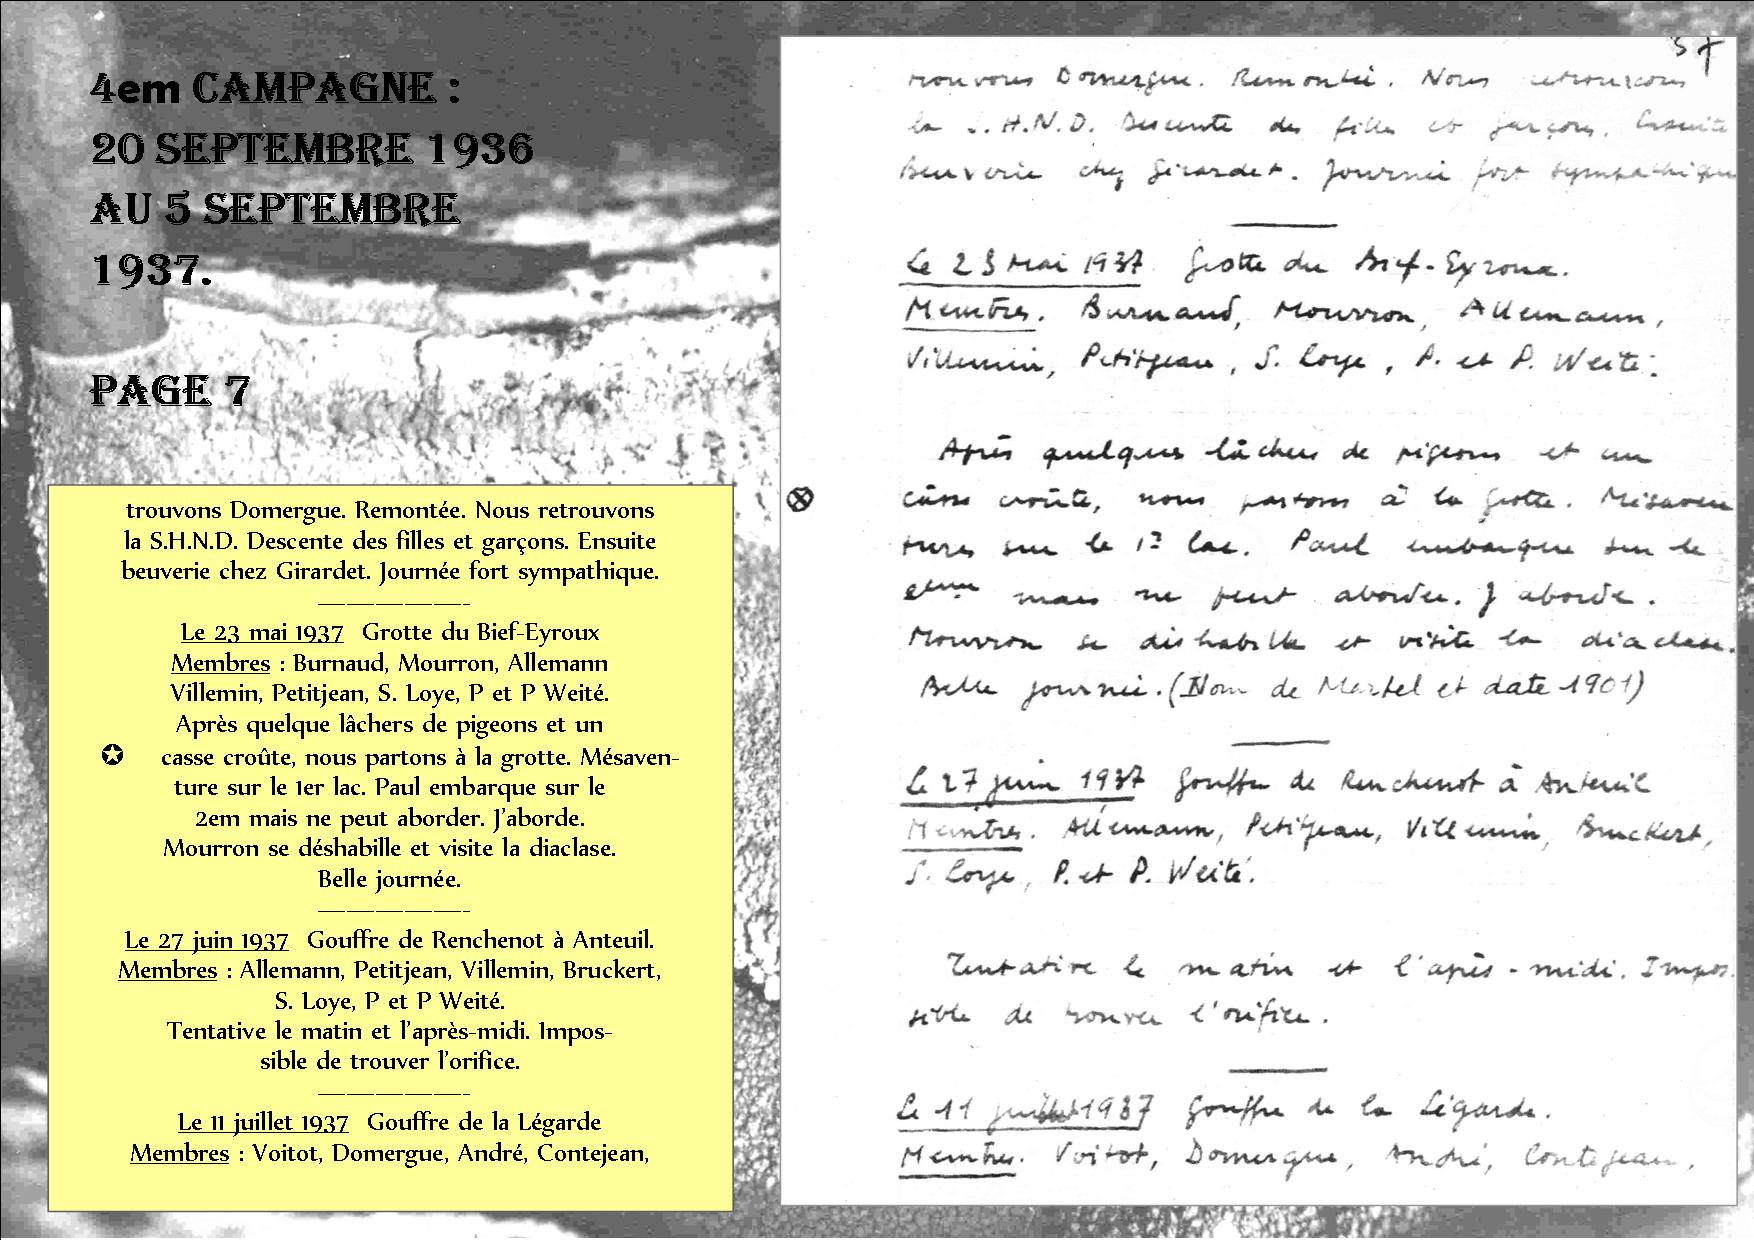 4em CAMPAGNE :
20 SEPTEMBRE 1936
AU 5 SEPTEMBRE
1937.
PAGE 7
trouvons Domergue. Remontée. Nous retrouvons
la S.H.N.D. Descente des filles et garçons. Ensuite
beuverie chez Girardet. Journée fort sympathique.
Le 23 mai 1937 Grotte du Bief-Eyroux
Membres : Burnaud, Mourron, Allemann
Villemin, Petitjean, S. Loye, P et P Weité.
Après quelque lâchers de pigeons et un
✪ casse croûte, nous partons à la grotte. Mésaven-
ture sur le 1er lac. Paul embarque sur le
2em mais ne peut aborder. J'aborde.
Mourron se déshabille et visite la diaclase.
Belle journée.
Le 27 juin 1937 Gouffre de Renchenot à Anteuil.
Membres : Allemann, Petitjean, Villemin, Bruckert,
S. Loye, P et P Weité.
Tentative le matin et l'après-midi. Impos-
sible de trouver l'orifice.
Le 11 juillet 1937 Gouffre de la Légarde
Membres : Voitot, Domergue, André, Contejean,
37
trouvons Domergue. Remontée. Nous retrouvons
la S.H.N.D. Descente des filles et garçons. Ensuite
Beuverie chez Girardet. Journée fort sympathique
Le 23 Mai 1937 Grotte du Bief-Eyroux.
Membres. Burnaud, Mourron, Allemann,
Villemin, Petitjean, S. Loye, P. et P. Weité.
Après quelques lâchers de pigeons et un
casse croûte, nous partons à la grotte. Mésaven
tures sur le 1er lac. Paul embarque sur le
2eme mais ne peut aborder. J'aborde.
Mourron se déshabille et visite la diaclase.
Belle journée. (Nom de Martel et date 1901)
Le 27 juin 1937 Gouffre de Renchenot à Anteuil
Membres. Allemann, Petitjean, Villemin, Bruckert,
S. Loye, P. et P. Weité.
Tentative le matin et l'après-midi. Impos
sible de trouver l'orifice.
Le 11 juillet 1937 Gouffre de la Légarde.
Membres. Voitot, Domergue, André, Contejean,